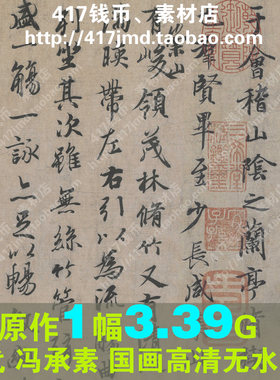 417钱币、素材店
http://417jmd.taobao.com
于會稽山陰之蘭亭
羣賢畢至少長咸
崇山
有峻領茂林脩竹又有
映帶左右引以為流
坐其次雖無絲竹管
盛一觴一詠亦足以暢
原作1幅3.39G
冯承素 国画高清无水